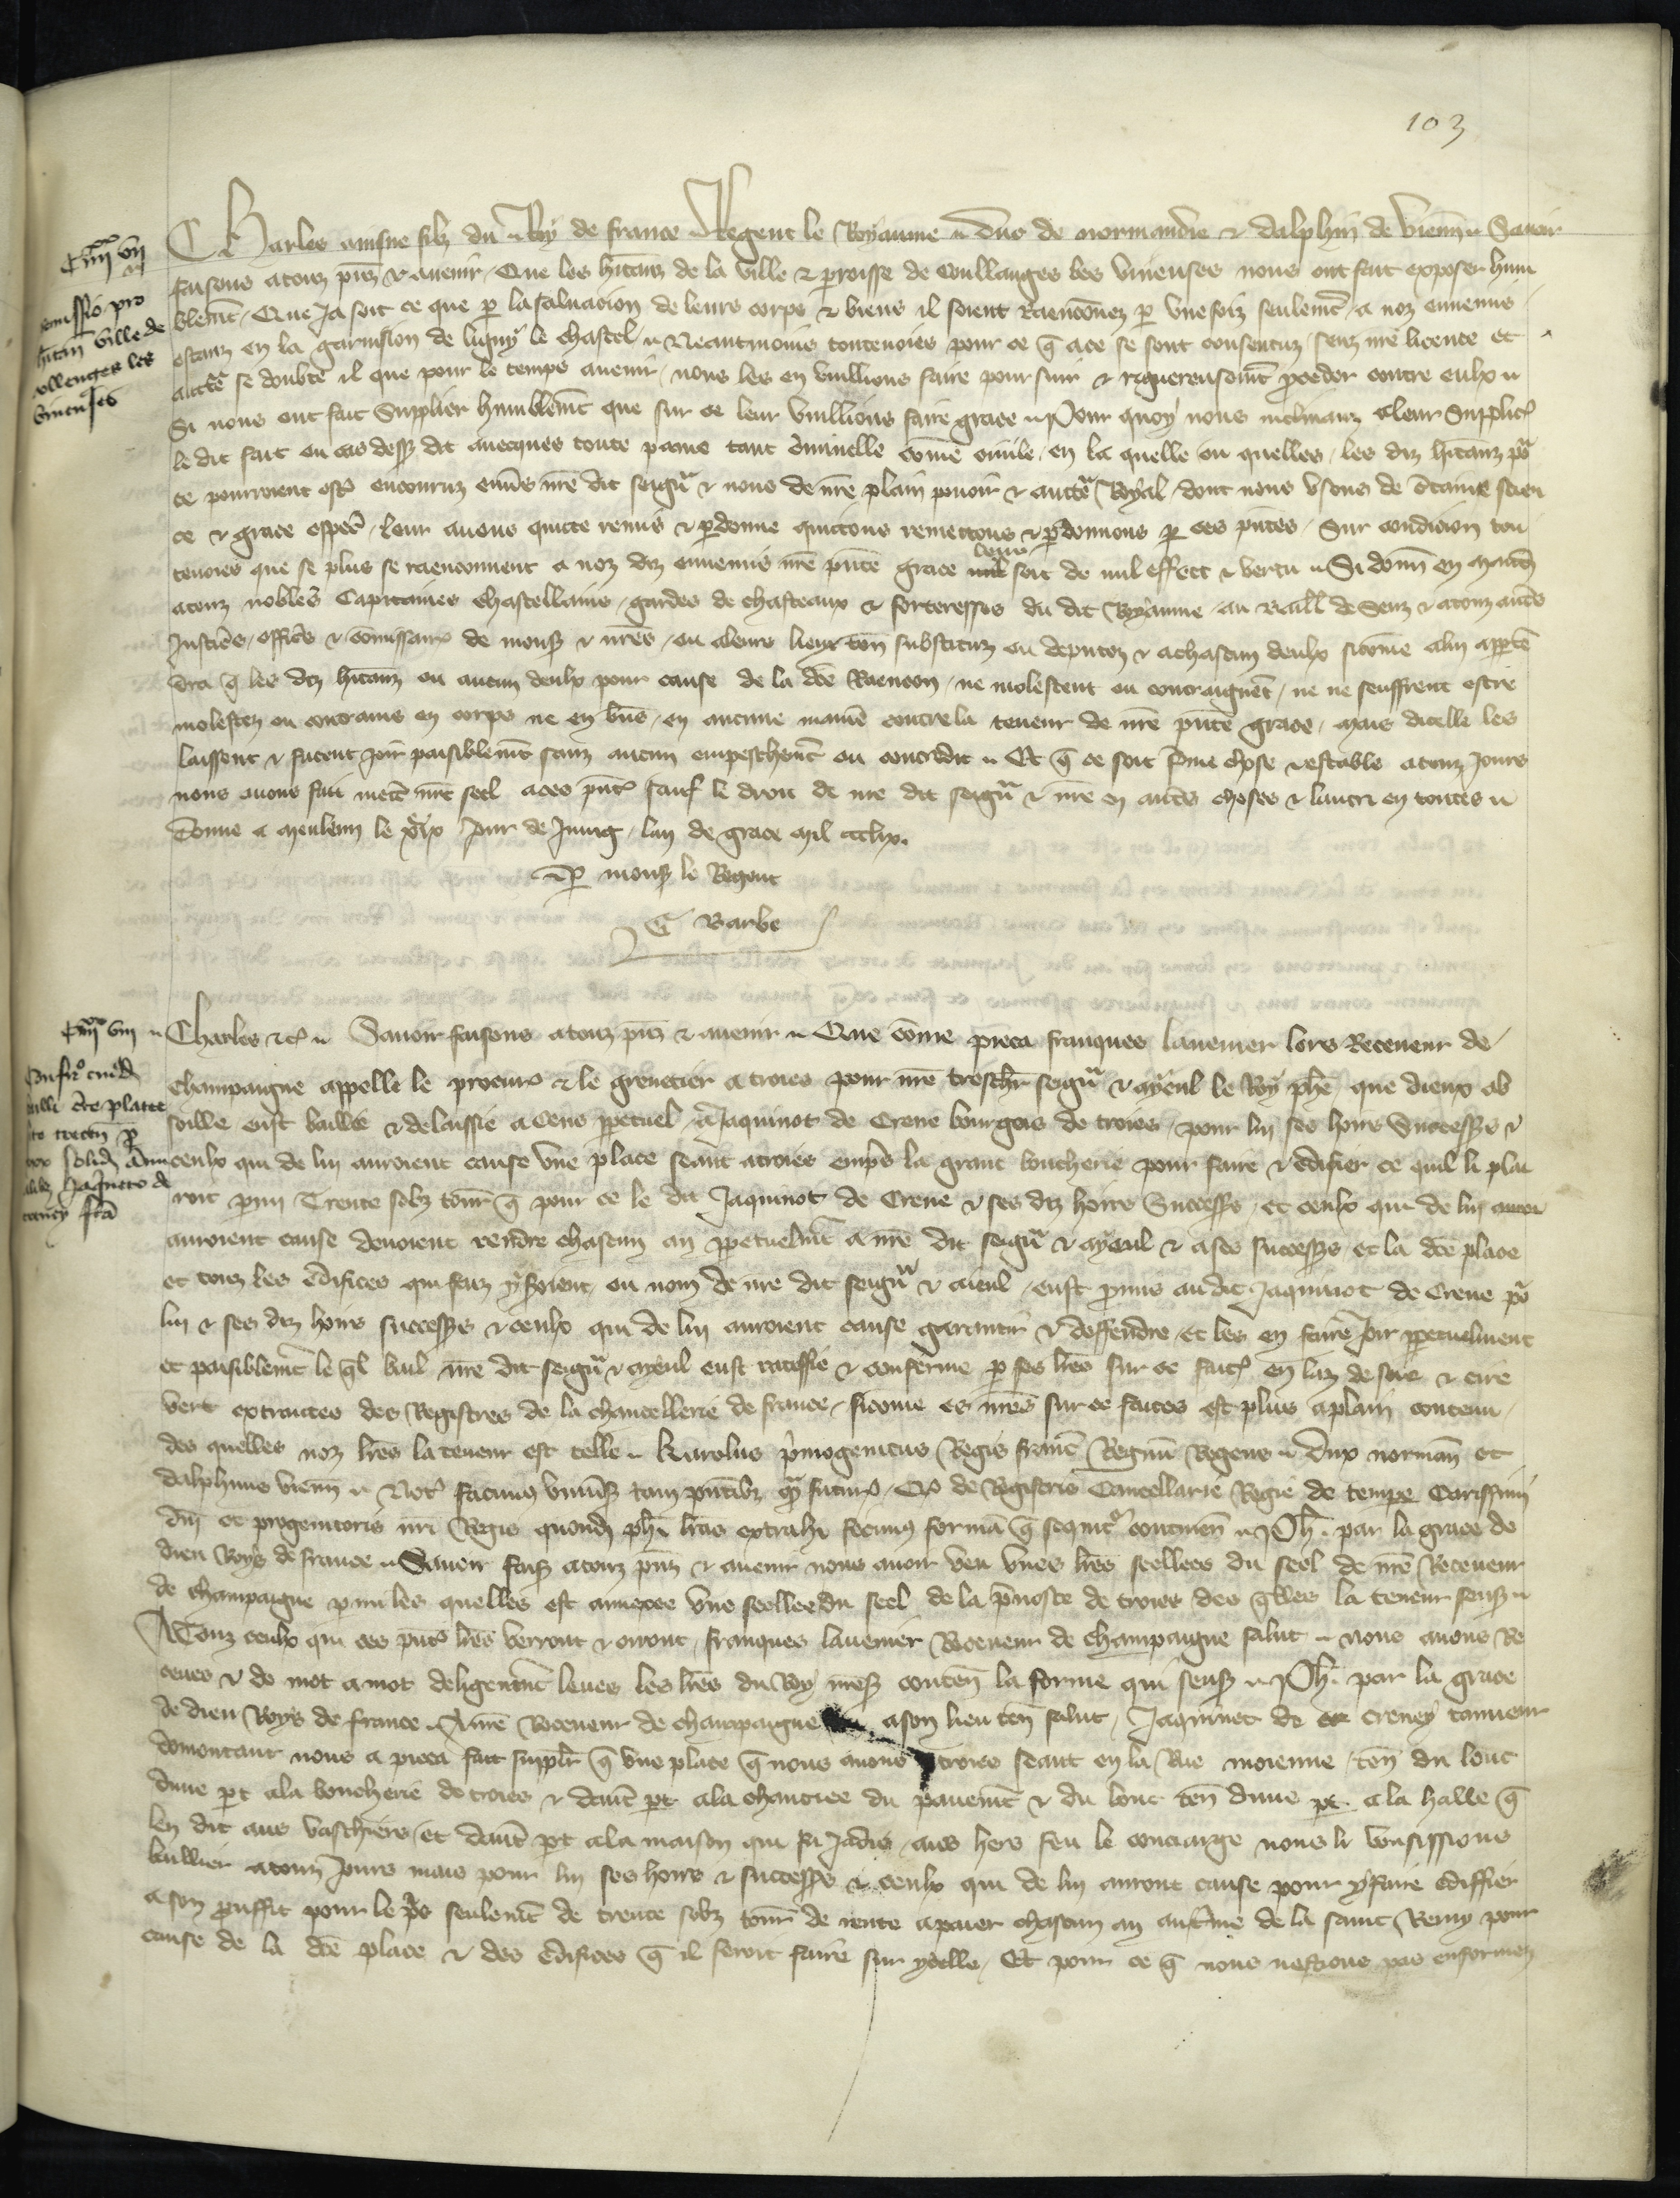 103
Charles ainsne filz du Roy de france Regent le Royaume duc de normandie & dalphin de vienn Savoir
faisons a touz pns & avenir Que les hitanz de la ville & proisse de coullanges les vineuses nous ont fait exposer hum
blemt Que Ja soit ce que p la salvacion de leurs corps & biens il soient Raenconnez p une foiz seulemt a noz ennemis
estanz en la garnison de ligny le chastel Neantmoins toutevoies pour ce q a ce se sont consentuz senz nre licence et
auctte se doubtent il que pour le temps avenir nous les en vuillions faire poursuir & rigoreusemt proceder contre eulx
Si nous ont fait Supplier humblemt que sur ce leur vuillions faire grace Pour quoy nous inclinanz a leur Supplic
le dit fait ou cas dessus dit avecques toute paine tant criminelle come civile en la quelle ou quelles les diz hitanz po
ce pourroient estre encouruz envers nre dit seigur & nous de nre plain povoir & auctte Royal dont nous usons de ctaine scien
ce & grace espec leur avons quicte remis & pdonne quictons remettons & pdonnons p ces pntes Sur condicion tou
tevoies que se plus se raenconnent a noz diz ennemis nre pnte grace leur soit de nul effect & vertu Si donn en mandt
a touz nobles Capitaines chastellains gardes de chasteaux & forteresses du dit Royaume au Baill de Senz & a touz autres
Justicrs officrs & comissair de mons & nres ou a leurs lieux ten substituz ou deputez & a chascun deulx sicome a lui appte
dra q les diz hitanz ou aucun deulx pour cause de la dce Raencon ne molestent ou contraignent ne ne seuffrent estre
molestez ou contrains en corps ne en bns en aucune manie contre la teneur de nre pnte grace mais dicelle les
laissent & facent joir paisiblemt sanz aucun empeschemt ou contredit Et q ce soit ferme chose & estable a touz jours
nous avons fait mettre nre seel a ces pnt sauf le droit de nre dit seigur & nre en autres choses & lautrui en toutes
Donne a meleun le jour de Juing lan de grace mil ccclix.
P mons le Regent
Barbe
Charles &c Savoir faisons a touz pns & avenir Que come pieca franques lavenier lors Receveur de
champaigne appelle le procureur & le grenetier a troies pour nre treschr seigur & ayeul le Roy phe que dieux ab
soille eust baillie & delaissie a cens ppetuel a Jaquinot de Crene bourgois de troies pour lui ses hoirs Successrs &
ceulx qui de lui auroient cause une place seant a troies empres la grant boucherie pour faire & edifier ce quil li plai
roit pmi Trente solz tourn q pour ce le dit Jaquinot de Crene & ses diz hoirs Success et ceulx qui de lui
auroient cause devoient rendre chascun an ppetuelmt a nre dit seigur & ayeul & a ses successrs et la dce place
et touz les edifices qui faiz y seroient ou nom de nre dit seigur & aieul eust pmis au dit Jaquinot de Crene po
lui & ses diz hoirs successrs & ceulx qui de lui auroient cause garantir & deffendre et les en faire joir ppetuelment
et paisiblemt le ql bail nre dit seigur & ayeul eust ratiffie & conferme p ses lres sur ce fait en laz de soie & cire
vert extraictes des Registres de la chancellerie de france sicome es nres sur ce faites est plus a plain contenu
des quelles noz lres la teneur est telle Karolus primogenitus Regis franc Regnu Regens dux normann et
dalphinus vienn Not facimus univs tam pntibz qm futur Q de Registris Cancellarie Regie de tempe Carissimi
dni et progenitoris nri Regis quond phi lras extrahi fecimus forma q sequit continen Ph par la grace de
dieu Roys de france Savoir fais a touz pns & avenir nous avoir veu unes lres scellees du seel de nre Receveur
de champaigne pmi les quelles est annexee une scellee du seel de la pvoste de troies des qlles la teneur sensuit
A Touz ceulx qui ces pnt lres verront & orront franques lavenier Receveur de champaigne salut nous avons Re
ceues & de mot a mot deligentmt leues les lres du Roy nres conten la forme qui sensuit Ph par la grace
de dieu Roys de france A nre Receveur de champaigne a son lieu ten salut Jaquinet de creney tanneur
domourant nous a pieca fait suppli q une place q nous avons a troies seant en la Rue moienne ten du lonc
dune pt a la boucherie de troies & daut pt a la chaucie du pavemt & du lonc ten dune pt a la halle q
len dit aus vaschiers et daut pt a la maison qui fu Jadis aus hers feu le conciarge nous li vousissions
baillier a touz jours mais pour lui ses hoirs & success & ceulx qui de lui auront cause pour y faire ediffier
a son prouffit pour le pris seulemt de trente solz tourn de rente a paier chascun an au terme de la saint Remy pour
cause de la dce place & des edifices q il feroit faire sur ycelle Et pour ce q nous nestions pas enformez
Remissio pro
hitan ville de
collenges les
vineuses